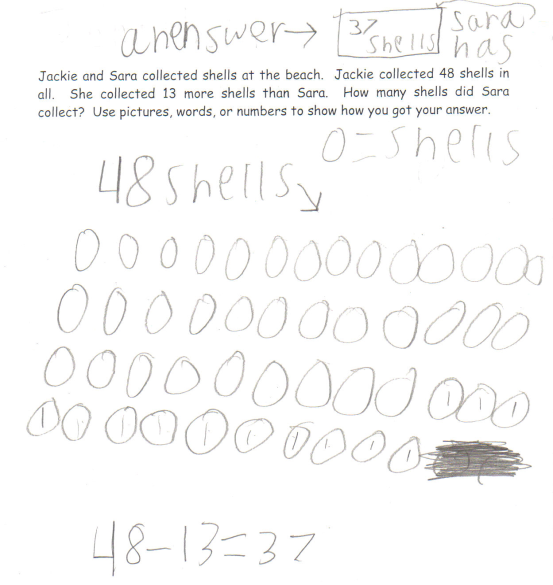 anenswer→ 37 shells Sara has
Jackie and Sara collected shells at the beach. Jackie collected 48 shells in
all. She collected 13 more shells than Sara. How many shells did Sara
collect? Use pictures, words, or numbers to show how you got your answer.
0=shells
48 shells
48-13=37